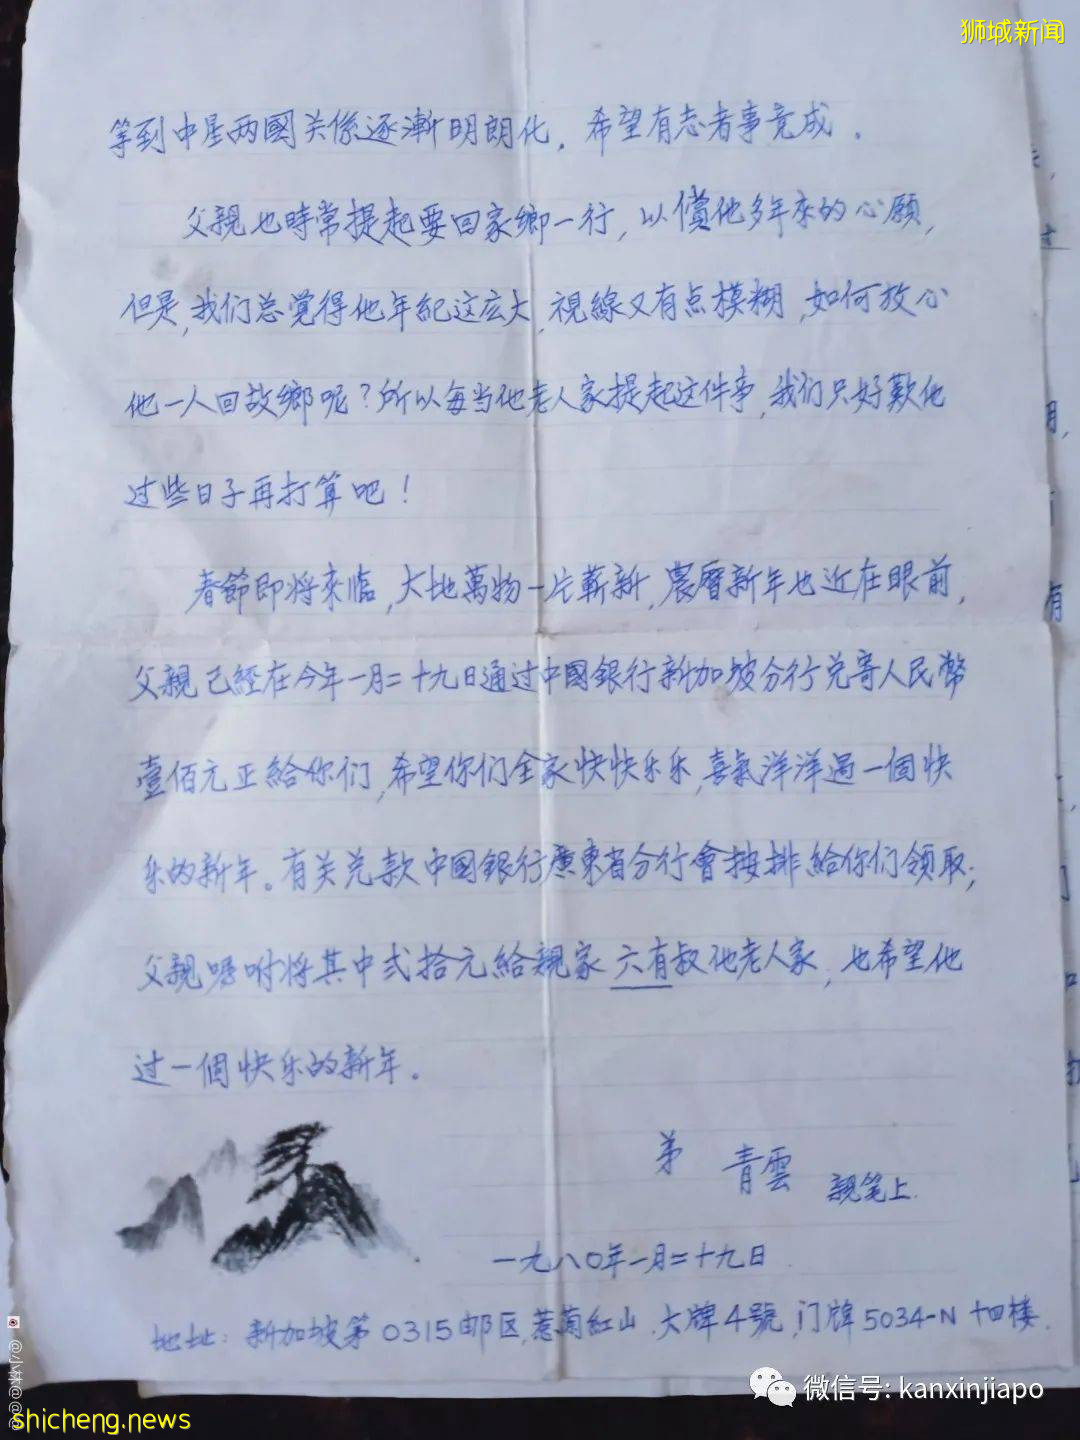 狮城新闻
等到中星两國关係逐漸明朗化，希望有志者事竟成．
父親也時常提起要回家鄉一行，以償他多年來的心願，
但是，我们总覺得他年紀这庅大，視線又有点模糊，如何放心
他一人回故鄉呢？所以每当他老人家提起这件事，我们只好歎他
过些日子再打算吧！
春節即将來临，大地萬物一片嶄新，農曆新年也近在眼前，
父親已經在今年一月二十九日通过中國銀行新加坡分行兑寄人民幣
壹佰元正給你们，希望你们全家快快乐乐，喜氣洋洋過一個快
乐的新年。有关兑款中國銀行廣東省分行會按排給你们领取；
父親嘱咐将其中弍拾元給親家六有叔他老人家，也希望他
过一個快乐的新年。
弟 青雲 親笔上．
一九八〇年一月二十九日
地址：新加坡第0315邮区，惹蘭紅山．大牌4號，门牌5034-N 十四楼．
@小林@@
微信号: kanxinjiapo
shicheng.news